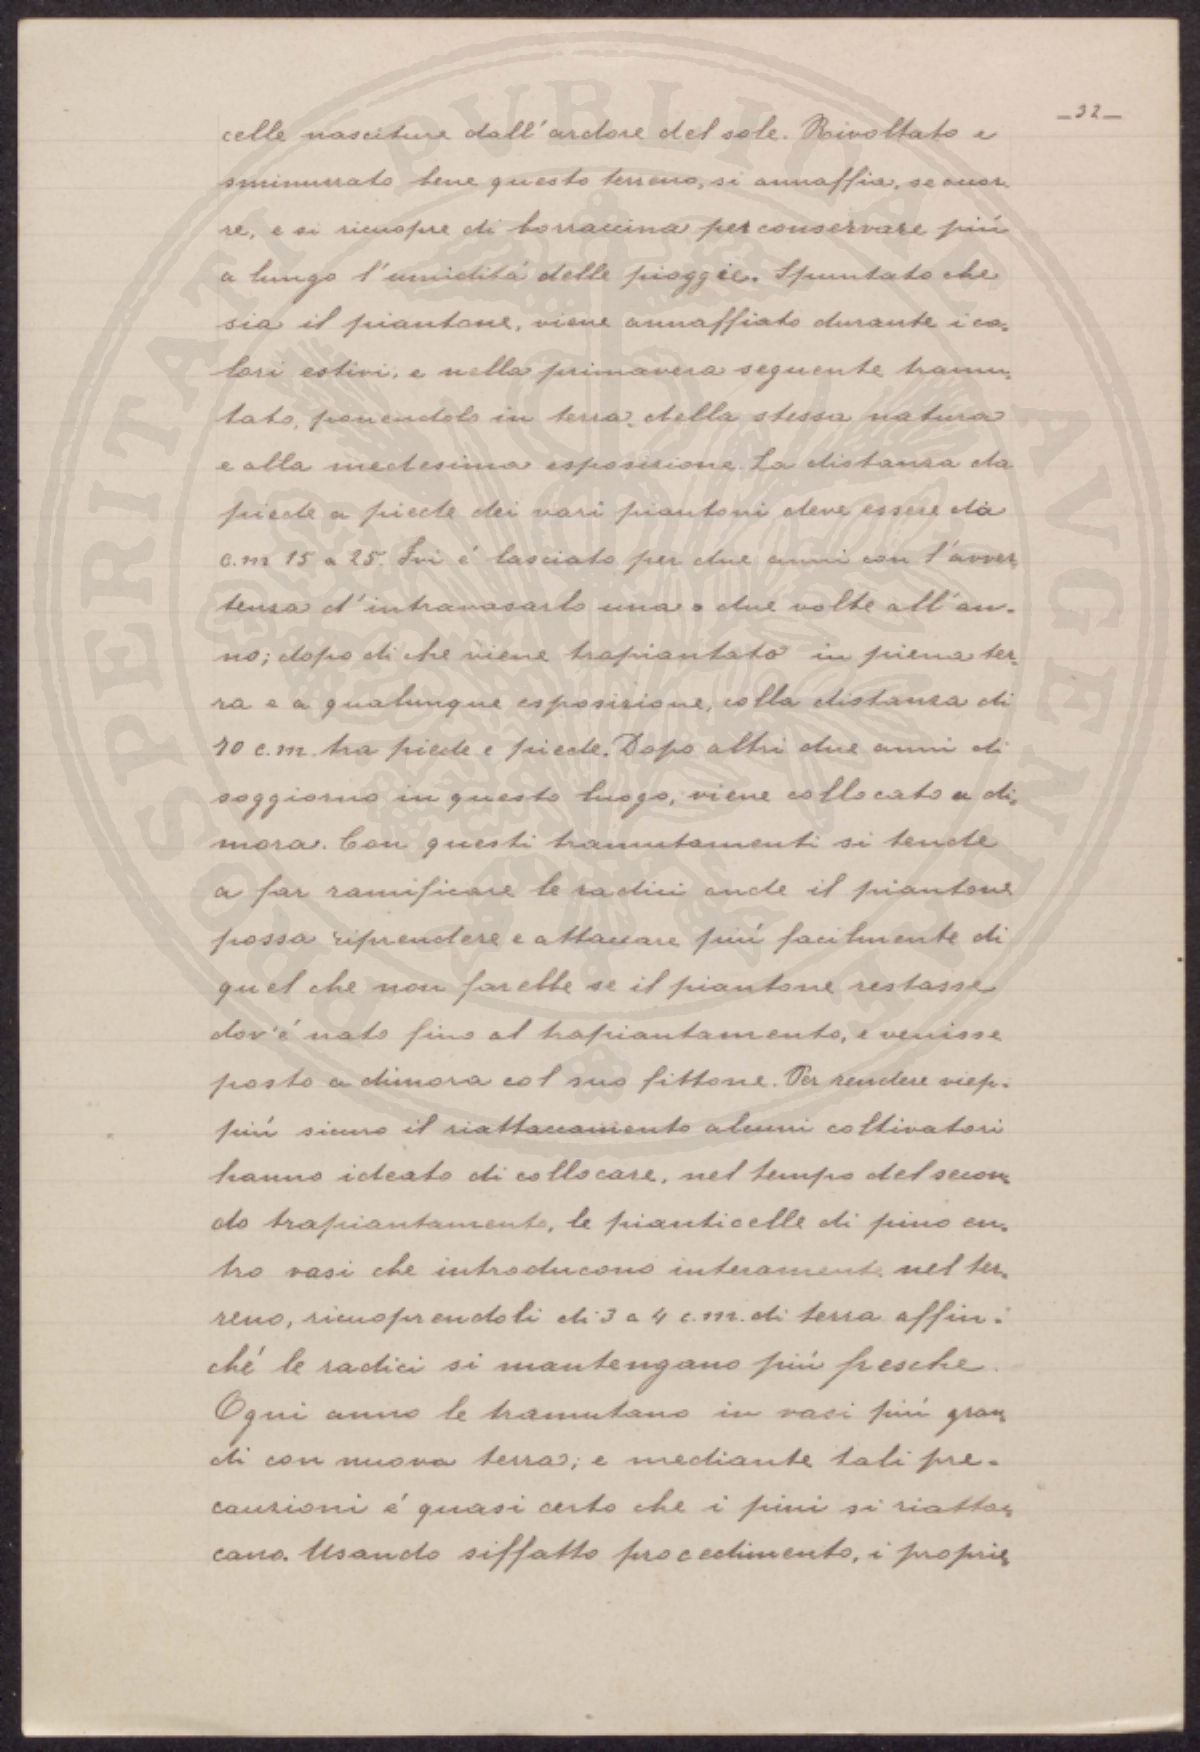 _32_
celle nasciture dall'ardore del sole. Rivoltato e
sminuzzato bene questo terreno, si annaffia, se occor-
re, e si ricuopre di borraccina per conservare piú
a lungo l'umiditá delle pioggie. Spuntato che
sia il piantone, viene annaffiato durante i ca-
lori estivi, e nella primavera seguente tramu-
tato, ponendolo in terra della stessa natura
e alla medesima esposizione. La distanza da
piede a piede dei vari piantoni deve essere da
c.m 15 a 25. Ivi é lasciato per due anni con l'avver-
tenza d'intravasarlo una o due volte all'an-
no; dopo di che viene trapiantato in piena ter-
ra e a qualunque esposizione, colla distanza di
70 c.m. tra piede e piede. Dopo altri due anni di
soggiorno in questo luogo, viene collocato a di-
mora. Con questi tramutamenti si tende
a far ramificare le radici onde il piantone
possa riprendere e attaccare piú facilmente di
quel che non farebbe se il piantone restasse
dov'é nato fino al trapiantamento, e venisse
posto a dimora col suo fittone. Per rendere viep-
piú sicuro il riattaccamento alcuni coltivatori
hanno ideato di collocare, nel tempo del secon-
do trapiantamento, le pianticelle di pino en-
tro vasi che introducono interament. nel ter-
reno, ricuoprendoli di 3 a 4 c.m. di terra affin-
ché le radici si mantengano piú fresche.
Ogni anno le tramutano in vasi piú gran-
di con nuova terra; e mediante tali pre-
cauzioni é quasi certo che i pini si riattac-
cano. Usando siffatto procedimento, i proprie-
PROSPERITATI PVBLICAE AVGENDAE